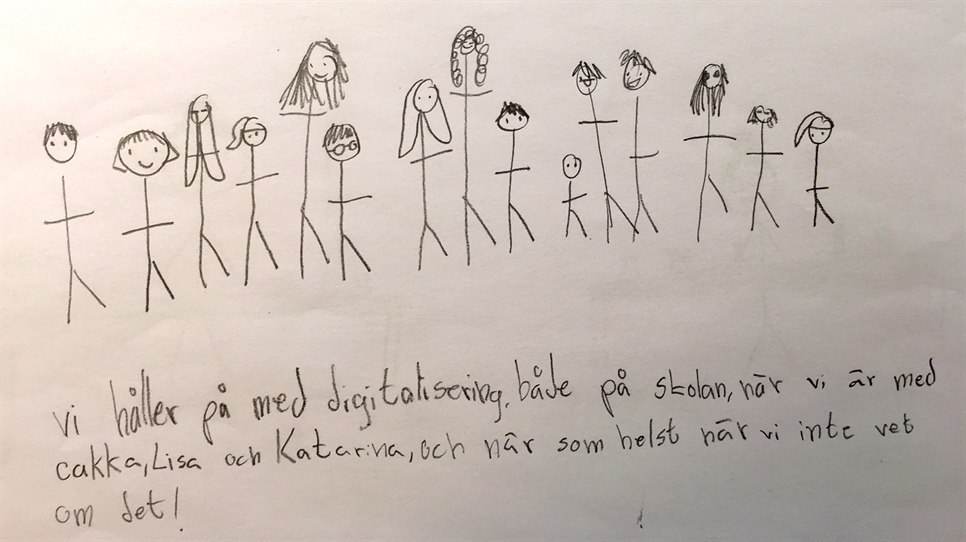 vi håller på med digitalisering, både på skolan, när vi är med
cakka, Lisa och Katarina, och när som helst när vi inte vet
om det!